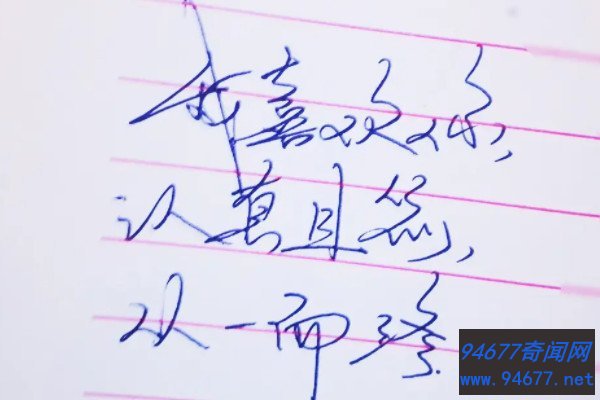 我喜欢你,
认真且怂,
从一而终.
94677奇闻网
www.94677.net